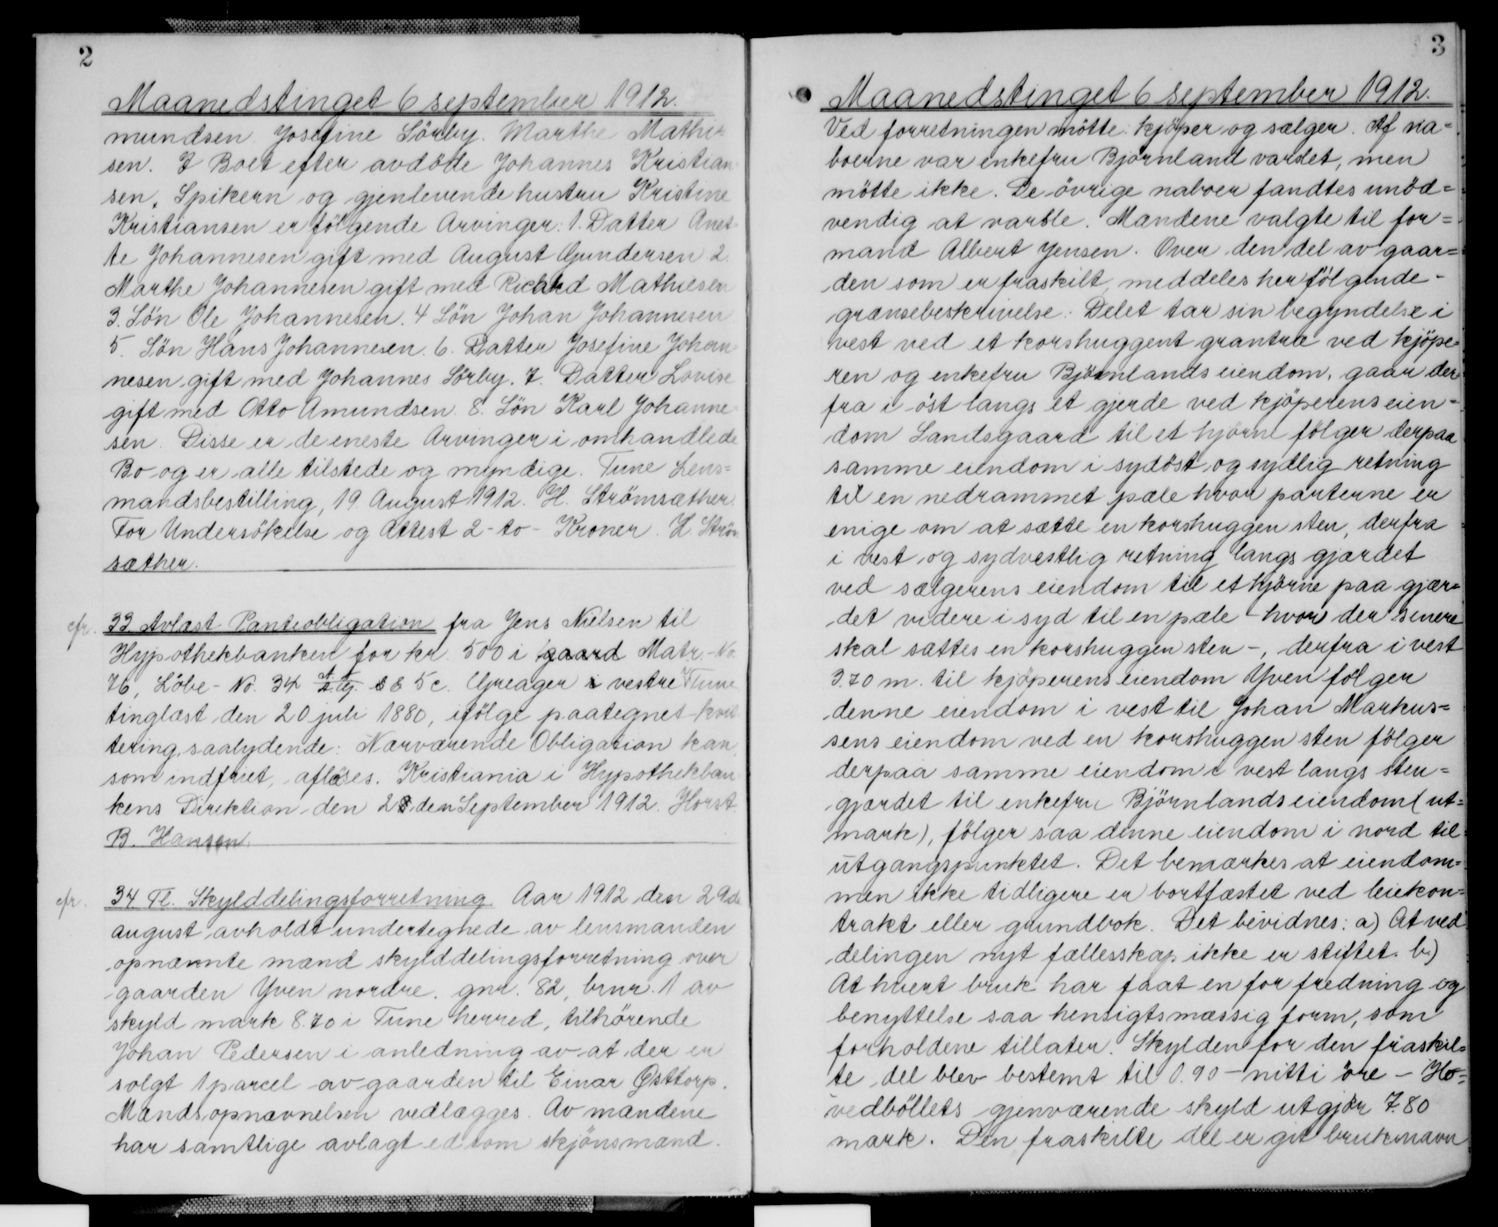 2
Maanedstinget 6 september 1912.
mundsen Josefine Sörby. Marthe Mathie
sen. I Boet efter avdöde Johannes Kristian
sen, Spikern og gjenlevende hustru Kristine
Kristiansen er følgende Arvinger: 1. Datter Anet
te Johannesen gift med August Gundersen 2.
Marthe Johannesen gift med Richard Mathiesen
3. Søn Ole Johannesen. 4 Sön Johan Johannesen
5. Sön Hans Johannesen. 6. Datter Josefine Johan
nesen gift med Johannes Sörby. 7. Datter Lovise
gift med Otto Amundsen. 8. Sön Karl Johanne
sen. Disse er de eneste Arvinger i omhandlede
Bo og er alle tilstede og myndige. Tune Lens=
mandsbestilling, 19 August 1912. H. Strömsæther.
For Undersökelse og Attest 2 - to - Kroner. H. Ström
sæther.
cfr. 33. Avlæst Panteobligation fra Jens Nielsen til
Hypothekbanken for kr. 500 i gaard Matr. No.
76, Löbe- No. 34 8 5 c. Greager i vestre Tune
tinglæst den 20 juli 1880, ifölge paategnet kvit
tering saalydende: Nærværende Obligation kan,
som indfriet, aflæses. Kristiania i Hypothekban
kens Direktion den 28 den September 1912. Horst.
B. Hansen.
cfr. 34. Tl. Skylddelingsforretning Aar 1912 den 29de
august avholdt undertegnede av lensmanden
opnævnte mænd skylddelingsforretning over
gaarden Yven nordre. gnr. 82, brnr. 1 av
skyld mark 8.70 i Tune herred, tilhörende
Johan Pedersen i anledning av at der er
solgt 1 parcel av gaarden til Einar Østtorp.
Mandsopnævnelsen vedlægges. Av mændene
har samtlige avlagt ed som skjönsmænd.
3
Maanedstinget 6 september 1912.
Ved forretningen mötte: kjöper og sælger. Af na=
boerne var enkefru Björnland varslet, men
mötte ikke. De övrige naboer fandtes unöd=
vendig at varsle. Mændene valgte til for=
mand Albert Jensen. Over den del av gaar=
den som er fraskilt, meddeles her fölgende-
grænsebeskrivelse: Delet tar sin begyndelse i
vest ved et korshuggent grantræ ved kjöpe=
ren og enkefru Björnlands eiendom, gaar der
fra i öst langs et gjerde ved kjöperens eien=
dom Landsgaard til et hjörne fölger derpaa
samme eiendom i sydöst og sydlig retning
til en nedrammet pæle hvor parterne er
enige om at sætte en korshuggen sten, derfra
i vest og sydvestlig retning langs gjærdet
ved sælgerens eiendom til et hjörne paa gjær=
det videre i syd til en pæle - hvor der senere
skal sættes en korshuggen sten -, derfra i vest
3.70 m. til kjöperens eiendom Yven fölger
denne eiendom i vest til Johan Markus=
sens eiendom ved en korshuggen sten fölger
derpaa samme eiendom i vest langs sten=
gjærdet til enkefru Björnlands eiendom (ut=
mark), fölger saa denne eiendom i nord til
utgangspunktet. Det bemærkes at eiendom=
men ikke tidligere er bortfæstet ved leiekon=
trakt eller grundbok. Det bevidnes: a) At ved
delingen nyt fællesskap ikke er stiftet. b)
At hvert bruk har faat en for fredning og
benyttelse saa hensigtsmæssig form, som
forholdene tillater. Skylden for den fraskil=
te del blev bestemt til 0.90 - nitti öre - Ho=
vedböllets gjenværende skyld utgjör 7.80
mark. Den fraskilte del er git bruksnavn